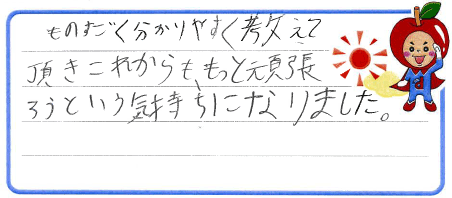 ものすごく分かりやすく教えて
頂きこれからも、もっと頑張
ろうという気持ちになりました。